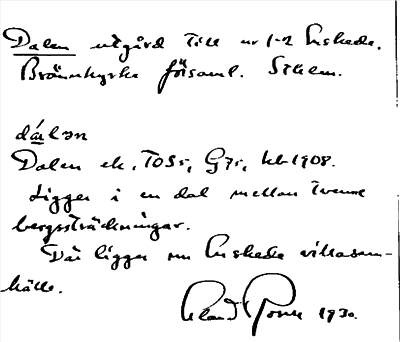 Dalen utgård till nr 1-2 Enskede.
Brännkyrka församl. Sthlm.
dálən
Dalen ek, TOSr, G7r, hb 1908.
Ligger i en dal mellan tvenne
bergssträckningar.
Där ligger nu Enskede villasam-
hälle.
1930.